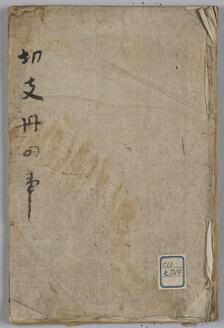 切支丹の事